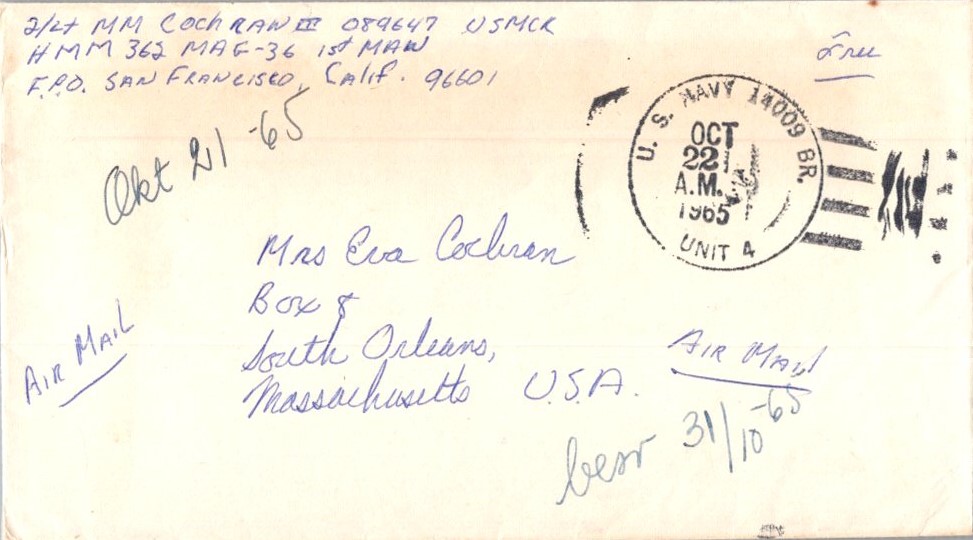 2/Lt MM COCHRAN III 089647 USMCR
HMM 362 MAG-36 1st MAW
F.P.O. SAN FRANCISCO, Calif. 96601
Free
Okt 21 -65
U. S. NAVY 14009 BR.
OCT
22
A.M.
1965
UNIT 4
Mrs Eva Cochran
Box 8
South Orleans,
Massachusetts U.S.A.
AIR MAIL
AIR MAIL
besv 31/10 -65